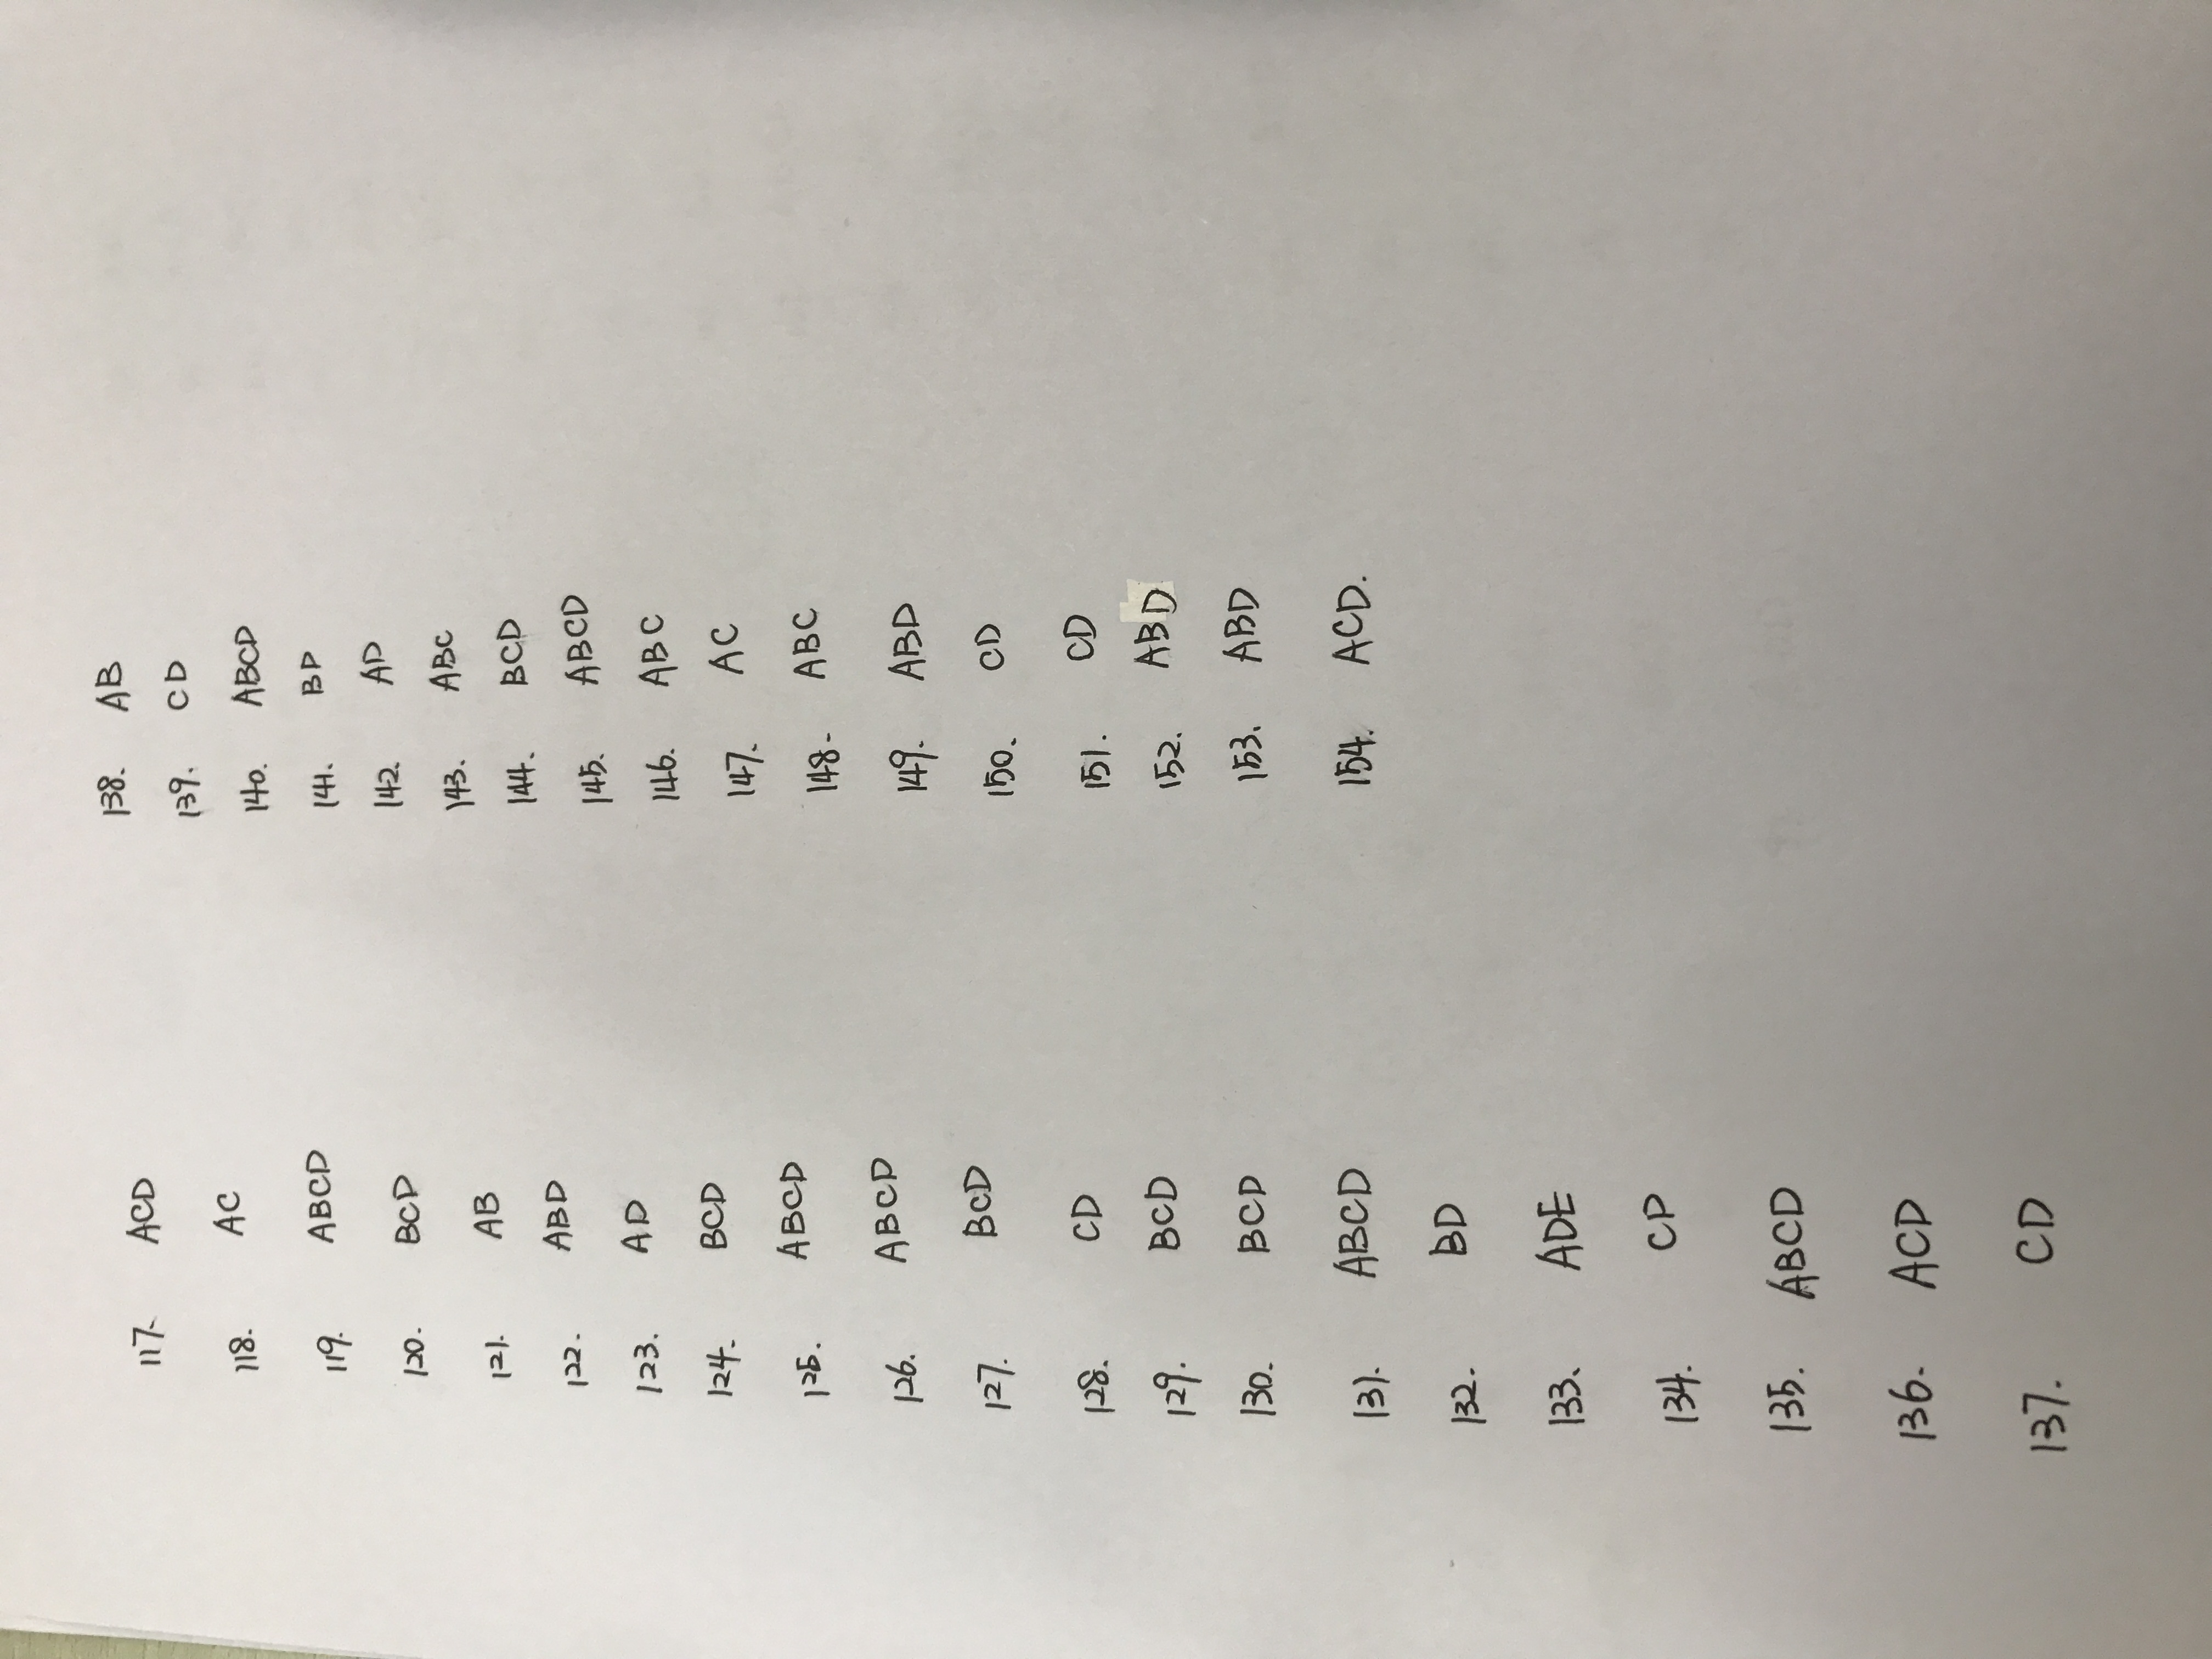 117. ACD
118. AC
119. ABCD
120. BCD
121. AB
122. ABD
123. AD
124. BCD
125. ABCD
126. ABCD
127. BCD
128. CD
129. BCD
130. BCD
131. ABCD
132. BD
133. ADE
134. CD
135. ABCD
136. ACD
137. CD
138. AB
139. CD
140. ABCD
141. BD
142. AD
143. ABC
144. BCD
145. ABCD
146. ABC
147. AC
148. ABC
149. ABD
150. CD
151. CD
152. ABD
153. ABD
154. ACD.